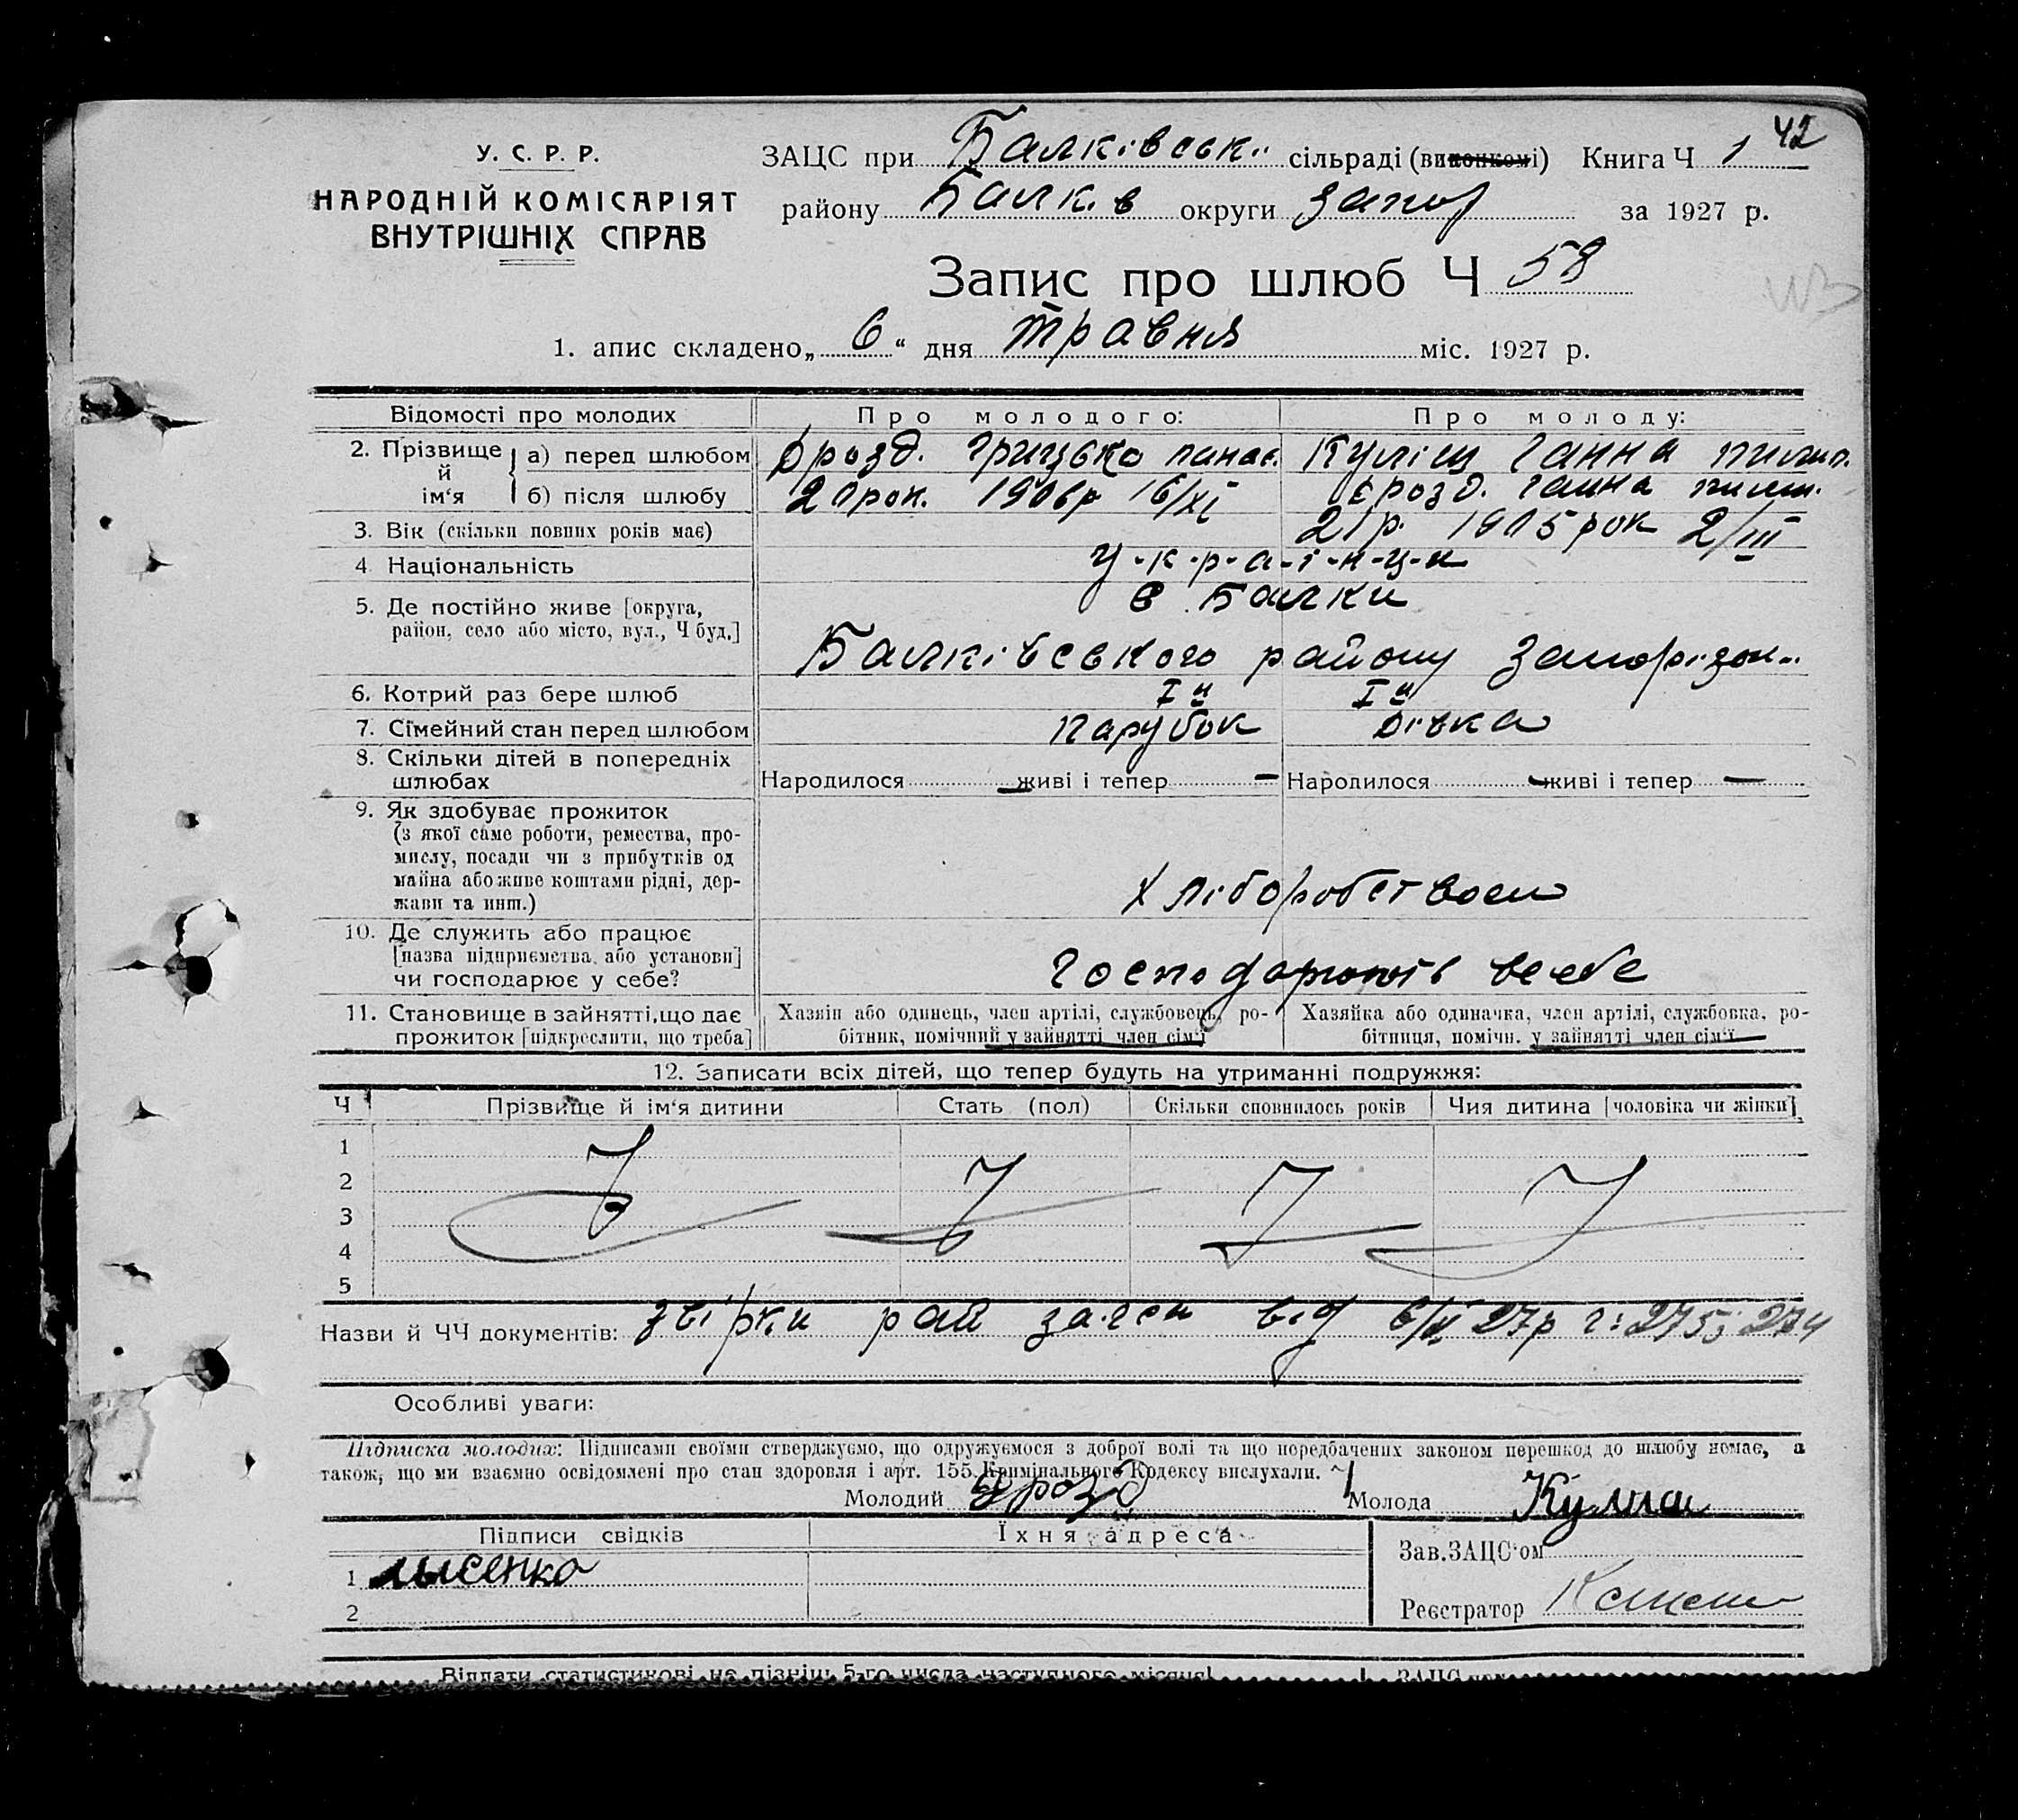 42
У. С. Р. Р.
НАРОДНІЙ КОМІСАРІЯТ
ВНУТРІШНІХ СПРАВ
ЗАЦС при Балківські сільраді (виконкомі) Книга Ч 1
району Балків округи Запор за 1927 р.
Запис про шлюб Ч 58
1. апис складено „6“ дня травня міс. 1927 р.
Відомості про молодих Про молодого: Про молоду:
2. Прізвище й ім'я { а) перед шлюбом Дрозд. Грицько панас. Куліш Ганна пилип.
б) після шлюбу 20 рок. 1906р 16/XI Дрозд. Ганна пилип.
3. Вік (скільки повних років має) 21р. 1905 рок 2/III
4 Національність у-к-р-а-ї-н-ц-и
5. Де постійно живе [округа, район, село або місто, вул., Ч буд.] с. Балки
Балківського району Запоріжок..
6. Котрий раз бере шлюб Iй Iй
7. Сімейний стан перед шлюбом парубок дівка
8. Скільки дітей в попередніх шлюбах Народилося — живі і тепер — Народилося — живі і тепер —
9. Як здобуває прожиток
(з якої саме роботи, ремества, про-
мислу, посади чи з прибутків од
майна або живе коштами рідні, дер-
жави та инш.) Хліборобством
10. Де служить або працює
[назва підприємства, або установи]
чи господарює у себе? господарюють всебе
11. Становище в зайнятті, що дає Хазяін або одинець, член артілі, службовець, ро- Хазяйка або одиначка, член артілі, службовка, ро-
прожиток [підкреслити, що треба] бітник, помічний у зайнятті член сім'ї бітниця, помічн. у зайнятті член сім'ї
12. Записати всіх дітей, що тепер будуть на утриманні подружжя:
Ч Прізвище й ім'я дитини Стать (пол) Скільки сповнилось років Чия дитина [чоловіка чи жінки]
1
2
3
4
5
Назви й ЧЧ документів: звірки рай від 27р 275; 274
Особливі уваги:
Підписка молодих: Підписами своїми стверджуємо, що одружуємося з доброї волі та що передбачених законом перешкод до шлюбу немає, а
також, що ми взаємно освідомлені про стан здоровля і арт. 155 Кримінального Кодексу вислухали.
Молодий Дрозд Молода
Підписи свідків Їхня адреса Зав. ЗАЦС'ом
1 лысенко
2 Реєстратор
Віддати статистикові не пізніш 5-го числа наступного місяця! ЗАЦС